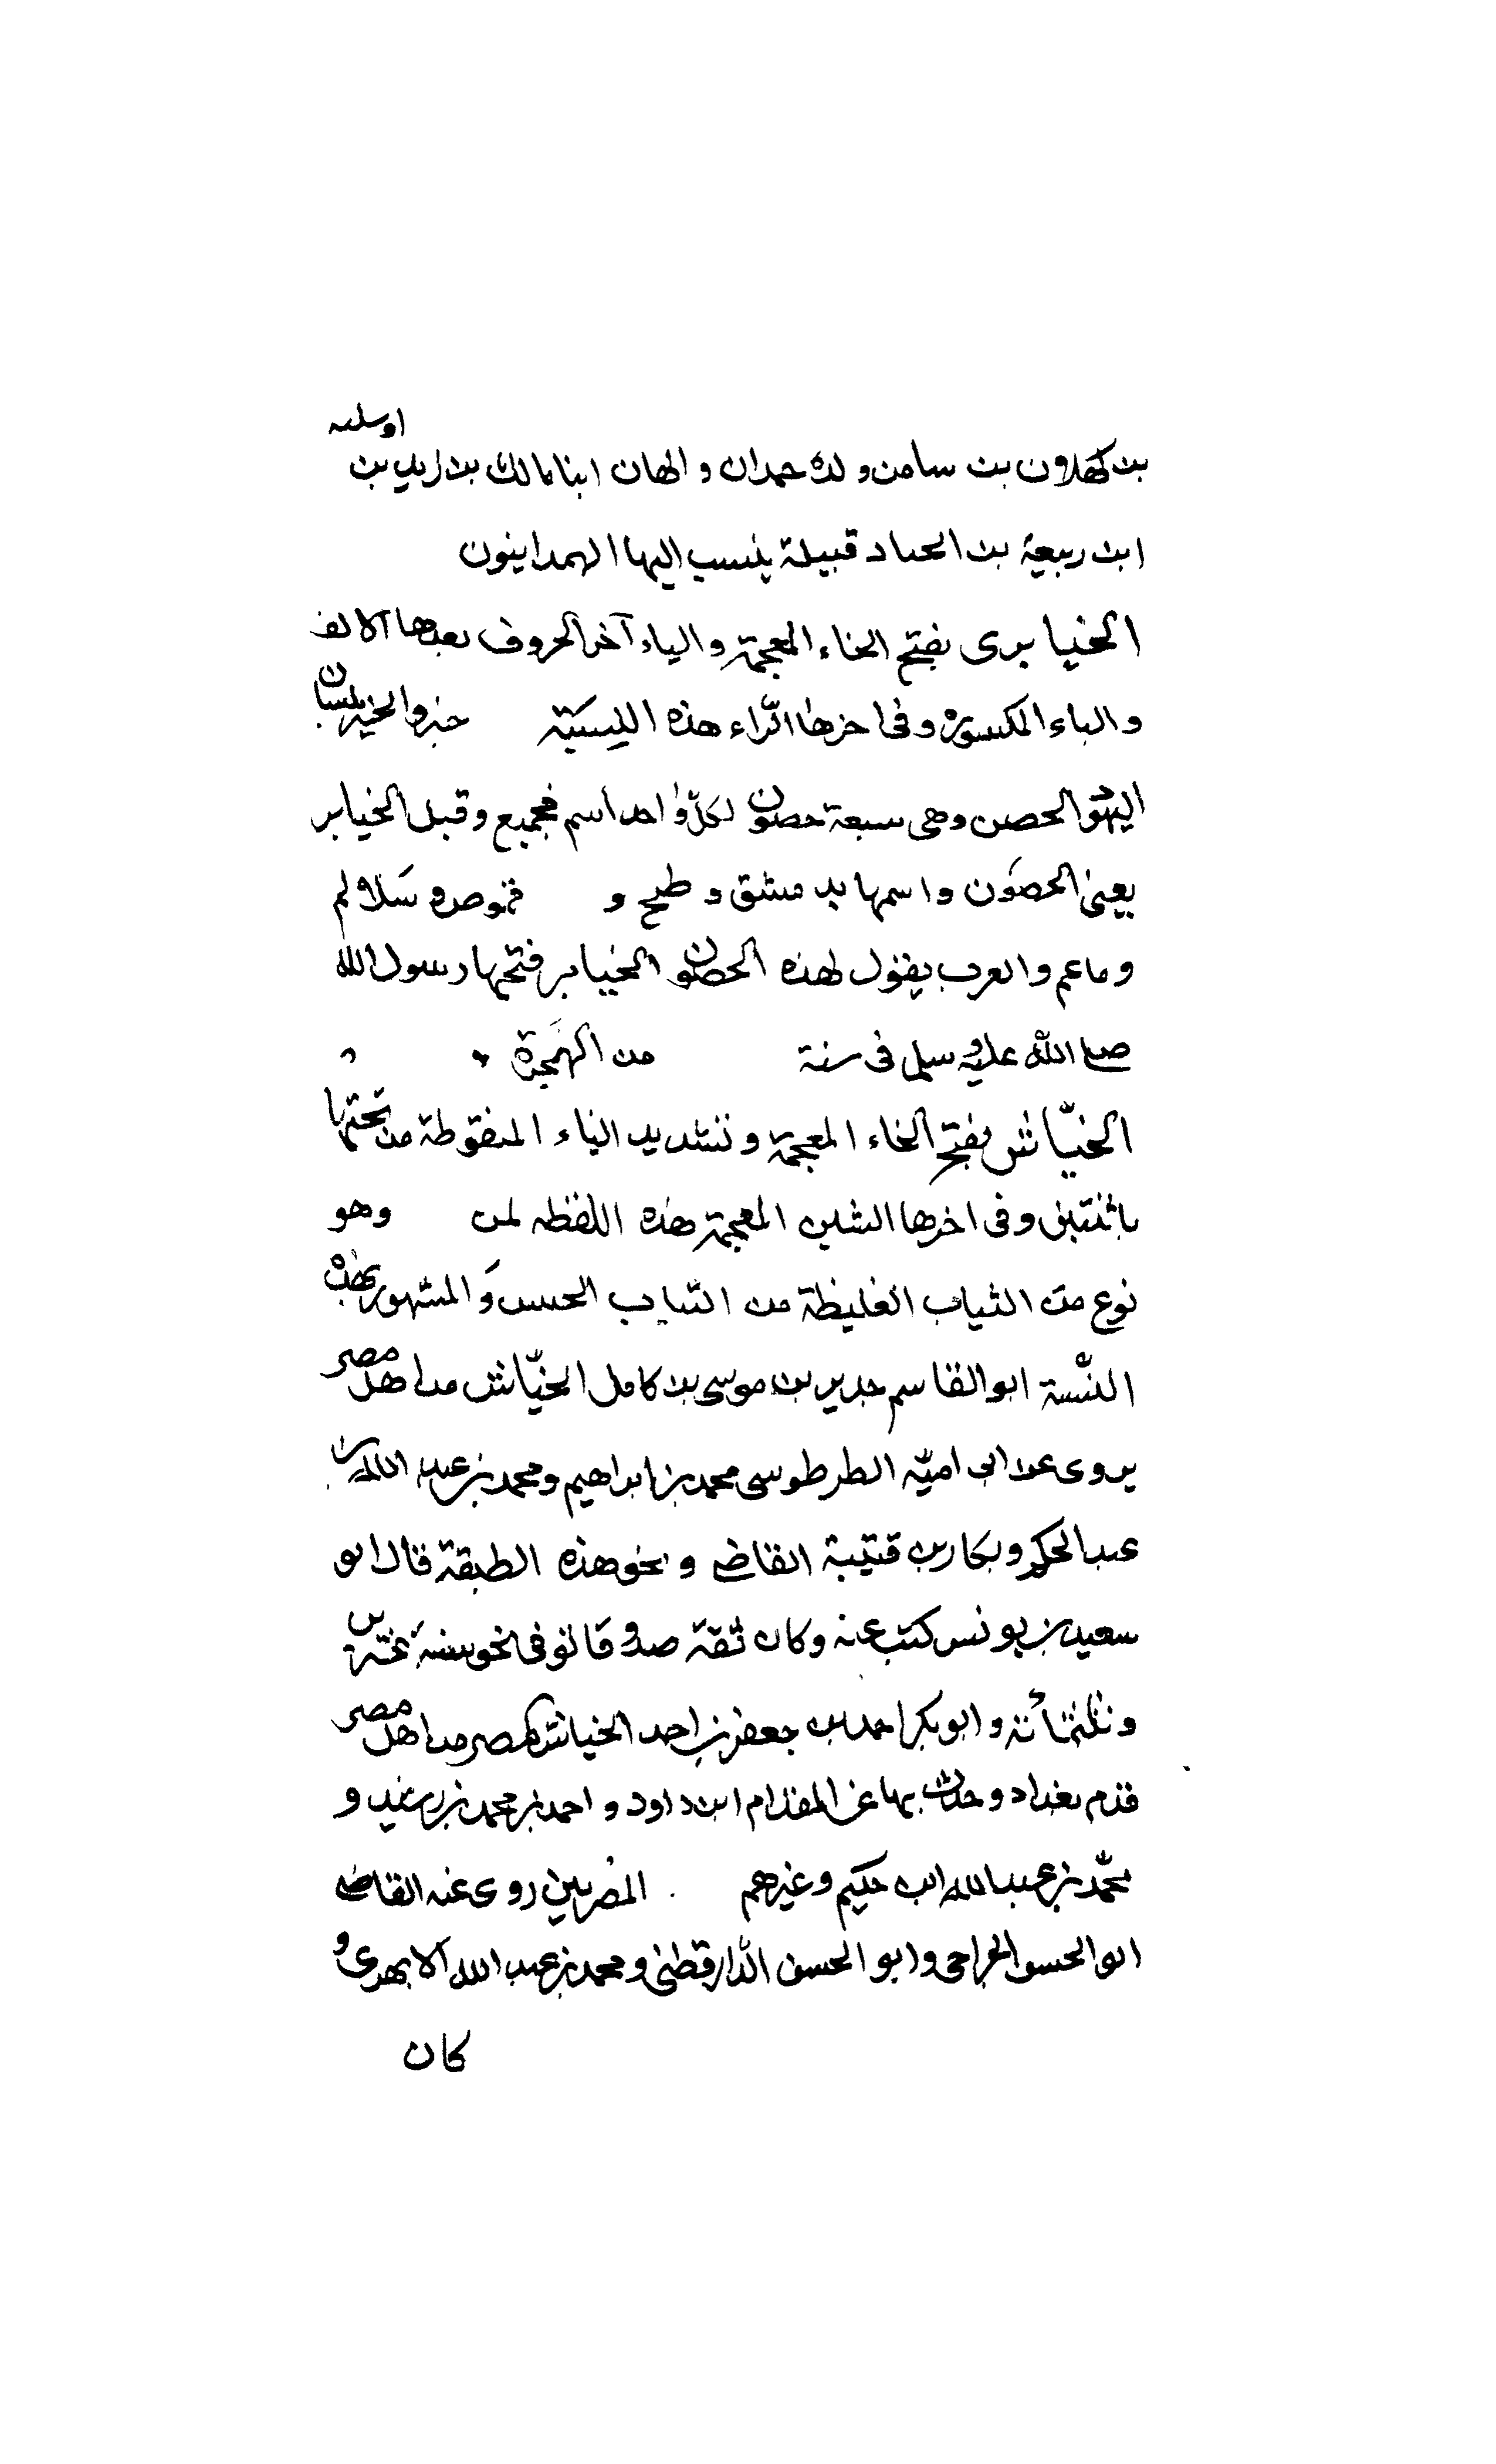 بن كهلان بن سبا من ولده همدان والهان ابنا مالك بن زيد بن اوسلة
ابن ربيعة بن الحباد قبيلة ينسب اليها الهمدانيون
الخيابرى بفتح الخاء المعجمة والياء آخر الحروف بعدها الالف
والباء المكسورة وفى اخرها الراء هذه النسبة خيبر والخيبر بلسان
اليهود الحصن وهى سبعة حصون لكل واحد اسم فجمع وقيل الخيابر
يعنى الحصون واسمها بد مشق و طيح و قموصه وسلالم
وماعم والعرب يقول لهذه الحصون الخيابر فتحها رسول الله
صلى الله عليه وسلم فى سنة من الهجرة
الخيّاش بفتح الخاء المعجمة وتشديد الياء المنقوطة من تحتها
باثنتين وفى اخرها الشين المعجمة هذه اللفظه لمن وهو
نوع من الثياب الغليظة من الثياب والمشهور بهذه
النسبة ابو القاسم جرير بن موسى بن كامل الخيّاش من اهل مصر
يروى عن ابى اميّه الطرطوسى محمد بن ابراهيم ومحمد بن عبد الله بن
عبد الحكم وبكار بن قتيبة القاضى ونحو هذه الطبقة قال ابو
سعيد بن يونس كتب عنه وكان ثقة صدوقا توفى نحو سنة عشرين
وثلثمائة وابو بكر احمد بن جعفر بن احمد الخياش بمصر من اهل مصر
قدم بغداد وحدث بها عن المقدام ابن داود واحمد بن محمد بن رشيد و
محمّد بن عبد الله ابن حكيم وغيرهم المصريين روى عنه القاضى
ابو الحسن الجراحى وابو الحسن الدارقطنى ومحمد بن عبد الله الابهرى و
كان